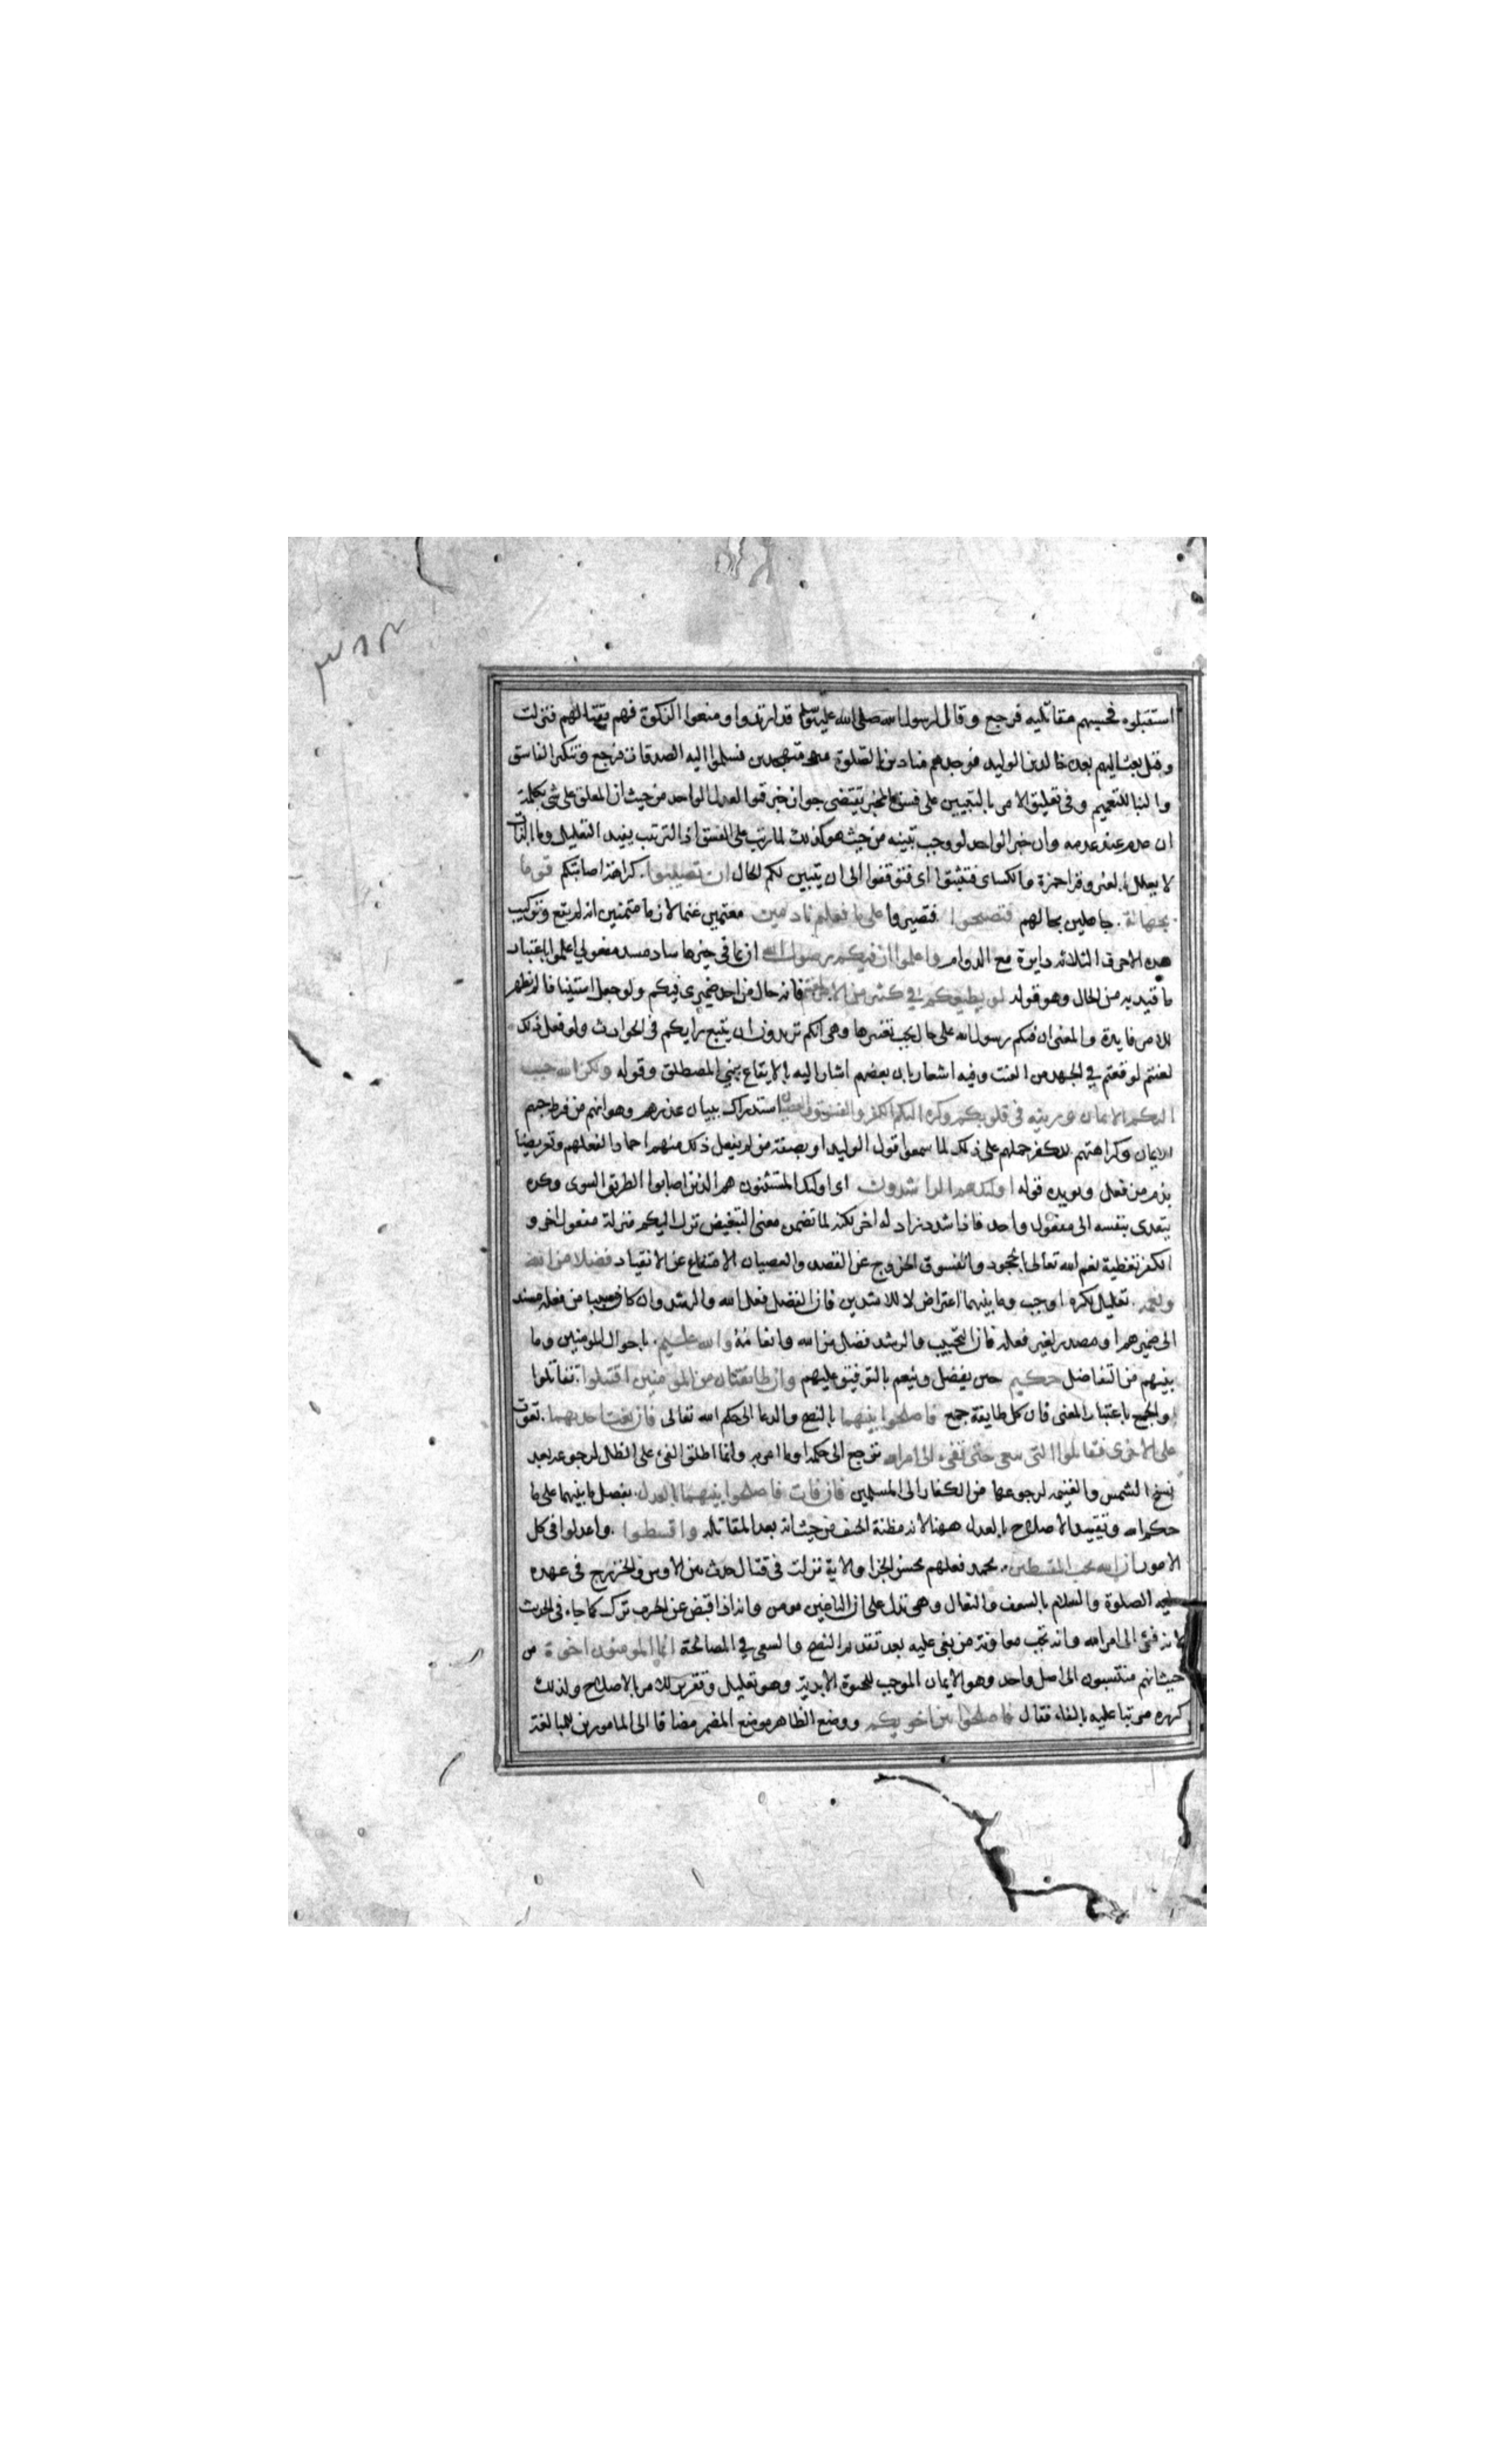 استقبلوه فحسبهم مقاتليه فرجع وقال لرسول الله صلى الله عليه وسلم قد ارتدوا ومنعوا الزكوة فهم بقتالهم فنزلت
وقيل بعث اليهم بعده خالد بن الوليد فوجدهم منادين بالصلوة متهجدين فسلموا اليه الصدقات فرجع وتنكير الفاسق
والنبا للتعميم وفى تعليق الامر بالتبيين على فسق المخبر يقتضى جواز خبر قبول العدل الواحد من حيث ان المعلق على شئ بكلمة
ان عدم عند عدمه وان خبر الواحد لو وجب تبينه من حيث هو كذلك لما رتب على الفسق اذ الترتب يفيد التعليل وما بالذات
لا يعلل بالغير وقرا حمزة والكسائى فتثبتوا اى فتوقفوا الى ان يتبين لكم الحال ان تصيبوا كراهة اصابتكم قوما
بجهالة جاهلين بحالهم فتصبحوا فتصيروا على ما فعلتم نادمين مغتمين غما لازما متمنين انه لم يقع وتركيب
هذه الاحرف الثلاثه دايرة مع الدوام واعلموا ان فيكم رسول الله ان بما فى حيزها ساد مسد مفعولى اعلموا باعتبار
ما قيد به من الحال وهو قوله لو يطيعكم في كثير من الامر لعنتم فانه حال من احد ضميرى فيكم ولو جعل استينافا لم يظهر
للامر فايدة والمعنى ان فيكم رسول الله على حال يجب تغييرها وهى انكم تريدون ان يتبع رايكم فى الحوادث ولو فعل ذلك
لعنتم لوقعتم في الجهد من العنت وفيه اشعار بان بعضهم اشار اليه بالايقاع ببني المصطلق وقوله ولكن الله حبب
اليكم الايمان وزينه فى قلوبكم وكره اليكم الكفر والفسوق والعصيان استدراك ببيان عذرهم وهو انهم من فرط حبهم
الايمان وكراهتهم للكفر حملهم على ذلك لما سمعوا قول الوليد او بصفة من لم يفعل ذلك منهم احمادا لفعلهم وتعريضا
بذم من فعل ويويده قوله اولئك هم الراشدون اى اولئك المستثنون هم الذين اصابوا الطريق السوى وكره
يتعدى بنفسه الى مفعول واحد فاذا شدد زاد له اخر لكنه لما تضمن معنى التبغيض نزل اليكم منزلة مفعول اخر و
الكفر تغطية نعم الله تعالى بالجحود والفسوق الخروج عن القصد والعصيان الامتناع عن الانقياد فضلا من الله
ونعمة تعليل لكره او حبب وما بينهما اعتراض لا للراشدين فان الفضل فعل الله والرشد وان كان مسببا من فعله مسند
الى ضميرهم او مصدر لغير فعله فان التحبيب والرشد فضل من الله وانعامه والله عليم باحوال المومنين وما
بينهم من التفاضل حكيم حين يفضل وينعم بالتوفيق عليهم وان طايفتان من المومنين اقتتلوا تقاتلوا
والجمع باعتبار المعنى فان كل طايفة جمع فاصلحوا بينهما بالنصح والدعا الى حكم الله تعالى فان بغت احديهما تعدت
على الاخرى فقاتلوا التى تبغى حتى تفىء الى امر الله ترجع الى حكمه او ما امر به وانما اطلق الفئ على الظل لرجوعه بعد
نسخ الشمس والغنيمه لرجوعها من الكفار الى المسلمين فان فات فاصلحوا بينهما بالعدل بفصل ما بينهما على ما
حكم الله وتقييد الاصلاح بالعدل ههنا لانه مظنة الحيف من حيث انه بعد المقاتله واقسطوا واعدلوا فى كل
الامور ان الله يحب المقسطين يحمد فعلهم بحسن الجزا والاية نزلت فى قتال حدث بين الاوس والخزرج فى عهده
عليه الصلوة والسلام بالسعف والنعال وهى تدل على ان الباغين مومن وانه اذا قبض عن الحرب ترك كما جاء فى الحديث
لانه فئ الى امر الله وانه تجب معاونة من بغى عليه بعد تقديم النصح والسعى في المصالحة انما المومنون اخوة من
حيث انهم منتسبون الى اصل واحد وهو الايمان الموجب للحيوة الابدية وهو تعليل وتقرير للامر بالاصلاح ولذلك
كرره مرتبا عليه بالفاء فقال فاصلحوا بين اخويكم ووضع الظاهر موضع المضمر مضافا الى المامورين للمبالغة